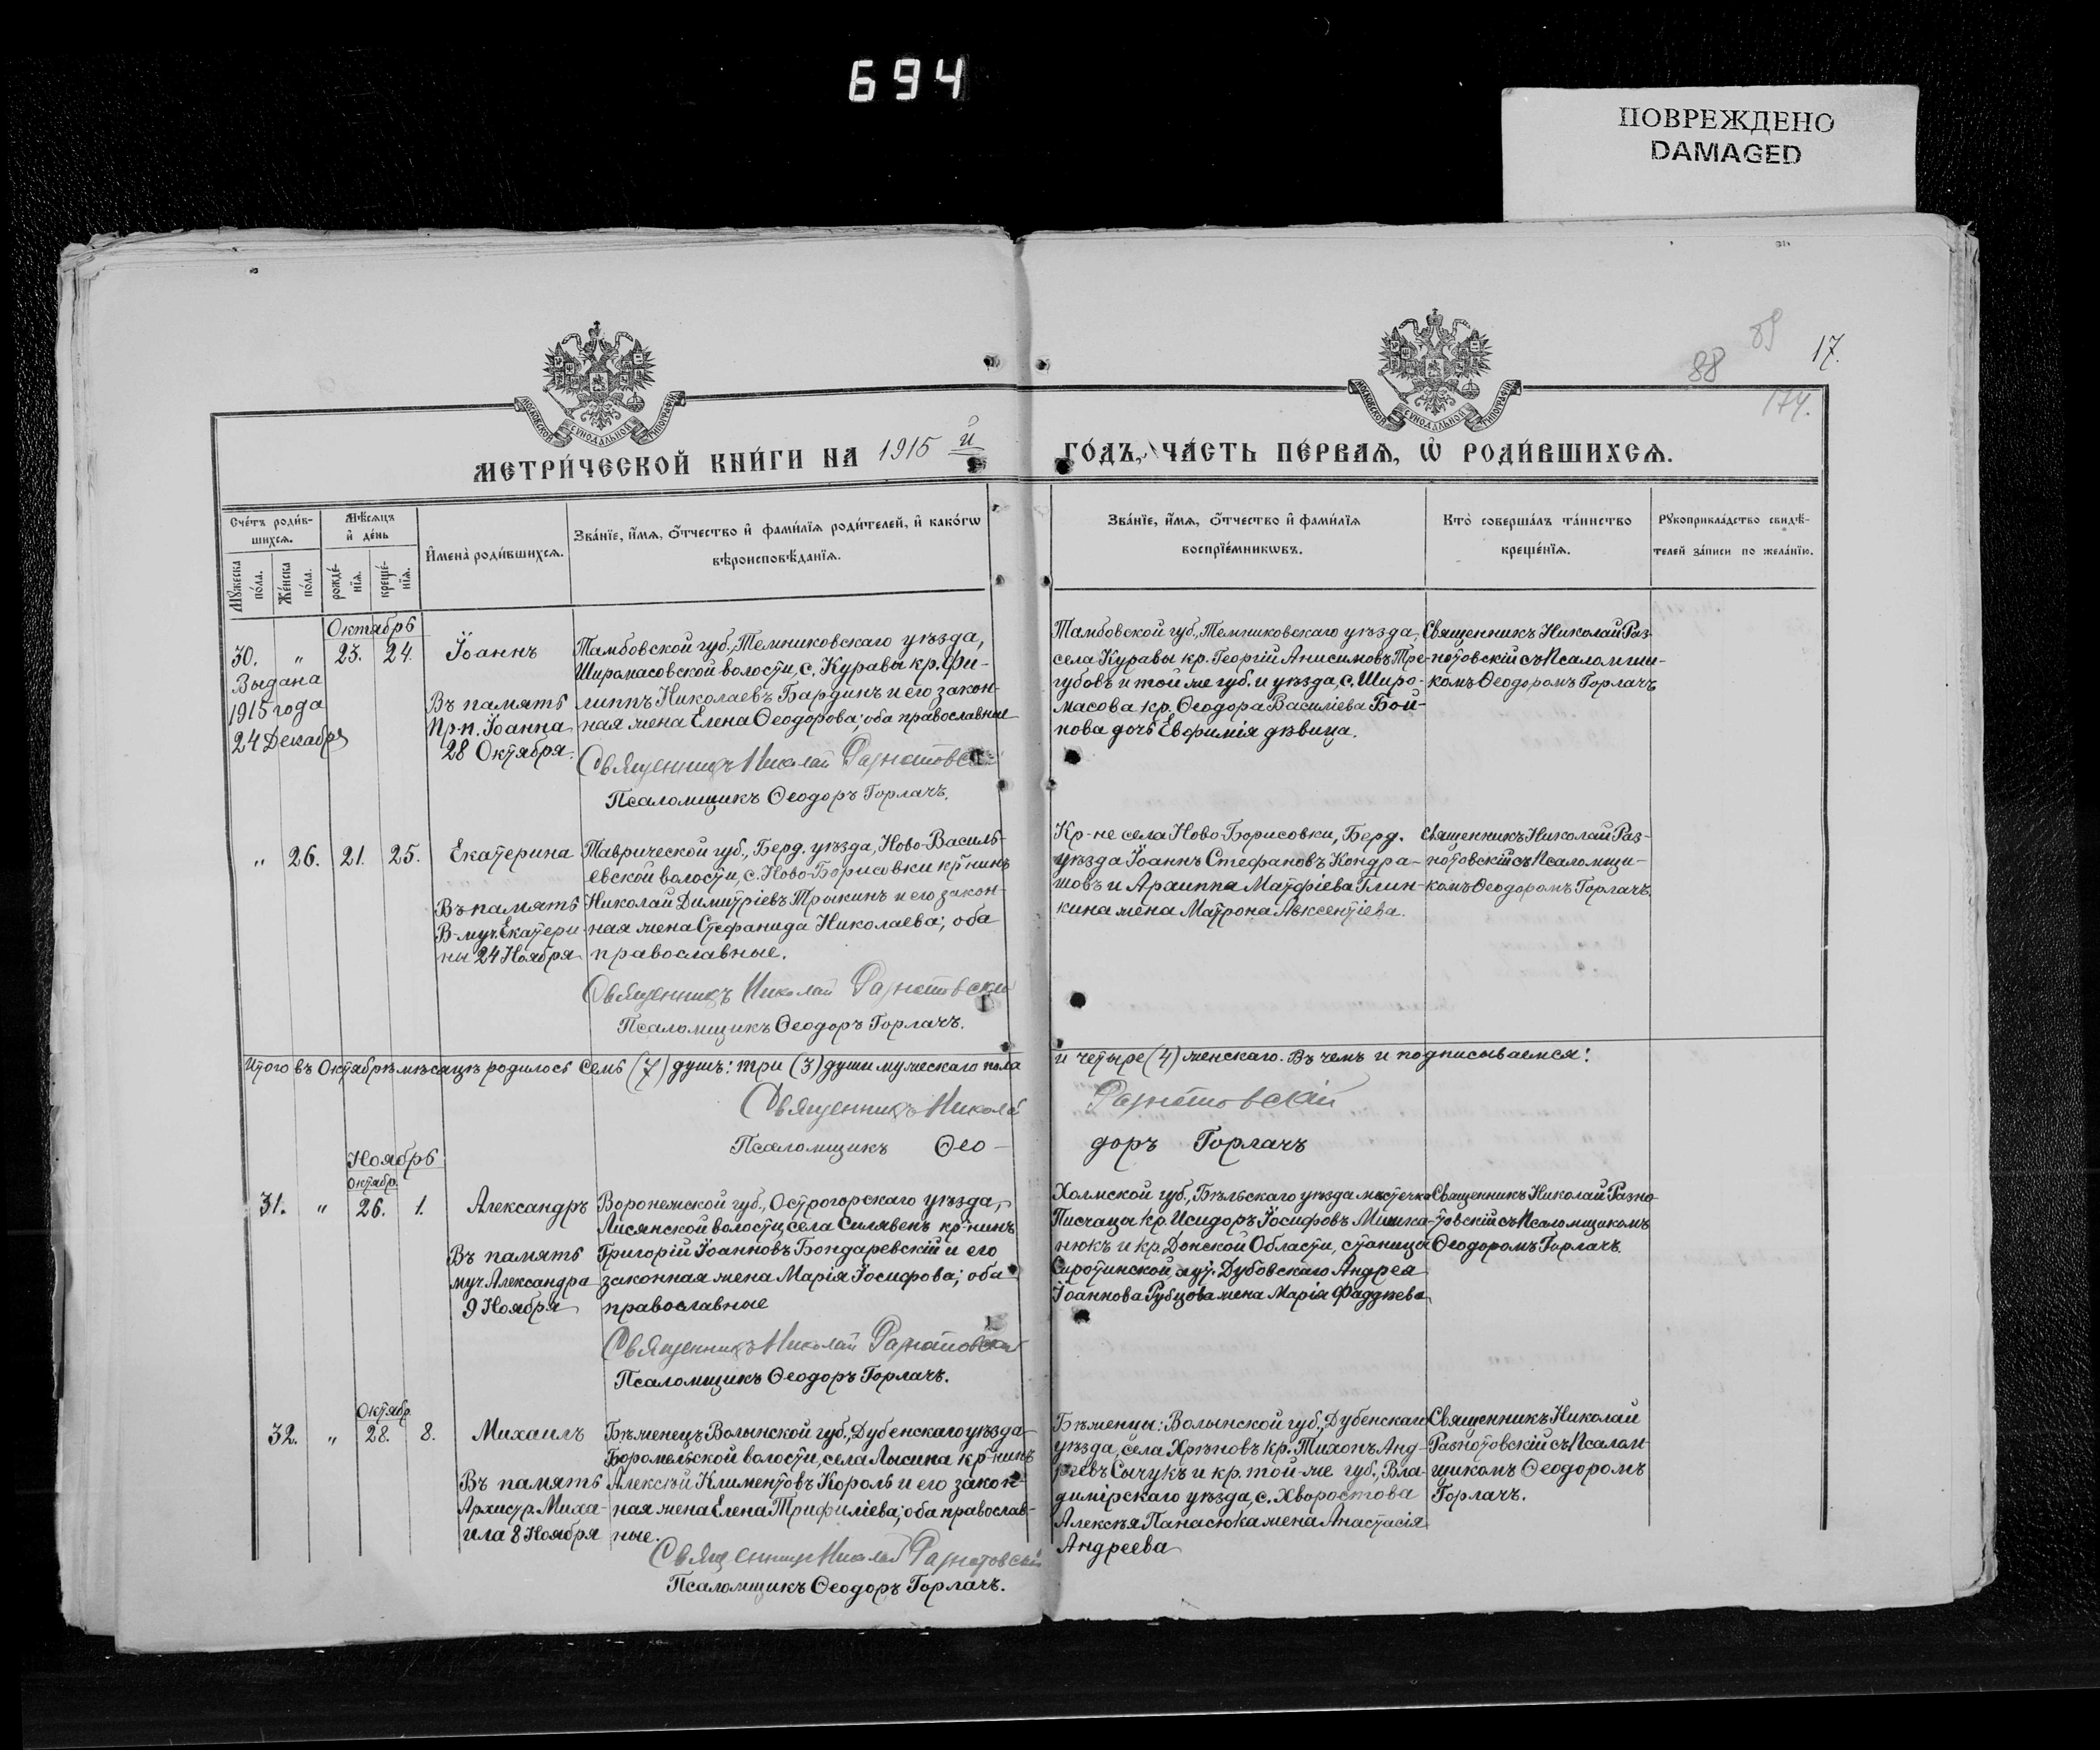 694
ПОВРЕЖДЕНО
DAMAGED
88
89
17.
174.
МОСКОВСКОЙ СѴНОДАЛЬНОЙ ТИПОГРАФІИ
МОСКОВСКОЙ СѴНОДАЛЬНОЙ ТИПОГРАФІИ
МЕТРИ́ЧЕСКОЙ КНИ́ГИ НА 1915 й
ГО́ДЪ, ЧА́СТЬ ПЕ́РВАѦ, Ѡ҆ РОДИ́ВШИХСѦ.
Сче́тъ роди́в-
шихсѧ.
Мꙋ́жеска
по́ла.
Же́нска
по́ла.
Мѣ́сѧцъ
и҆ де́нь
рожде́-
нїѧ.
креще́-
нїѧ.
И҆мена̀ роди́вшихсѧ.
Зва́нїе, и҆́мѧ, ѻ҆́тчество и҆ фами́лїѧ роди́телей, и҆ како́гѡ
вѣроисповѣ́данїѧ.
Зва́нїе, и҆́мѧ, ѻ҆́тчество и҆ фами́лїѧ
воспрїе́мникѡвъ.
Кто̀ соверша́лъ та́инство
креще́нїѧ.
Рꙋкоприкла́дство свидѣ́-
телей за́писи по жела́нїю.
Октябрь
30. " 23. 24.
Выдана
1915 года
24 Декабря
Іоаннъ
Въ память
Пр-п. Іоанна
28 Октября.
Тамбовской губ., Темниковскаго уѣзда,
Широмасовской волости, с. Куравы кр. Фи-
липпъ Николаевъ Бардинъ и его закон-
ная жена Елена Ѳеодорова; оба православные
Священникъ Николай Разнотовскі
Псаломщикъ Ѳеодоръ Горлачъ.
Тамбовской губ., Темниковскаго уѣзда,
села Куравы кр. Георгій Анисимовъ Тре-
губовъ и той же губ. и уѣзда, с. Широ-
масова кр. Ѳеодора Василіева Бой-
нова дочь Евфимія дѣвица.
Священникъ Николай Раз-
нотовскій съ Псаломщи-
комъ Ѳеодоромъ Горлачъ
" 26. 21. 25.
Екатерина
Въ память
В-муч. Екатери-
ны 24 Ноября
Таврической губ., Берд. уѣзда, Ново-Василь-
евской волости, с. Ново-Борисовки кр-нинъ
Николай Димитріевъ Трыкинъ и его закон-
ная жена Стефанида Николаева; оба
православные.
Священникъ Николай Разнотовски
Псаломщикъ Ѳеодоръ Горлачъ.
Кр-не села Ново-Борисовки, Берд.
уѣзда Іоаннъ Стефановъ Кондра-
товъ и Архиппа Матфіева Глин-
кина жена Матрона Авксентіева.
Священникъ Николай Раз-
нотовскій съ Псаломщи-
комъ Ѳеодоромъ Горлачъ.
Итого въ Октябрѣ мѣсяцѣ родилось семь (7) душъ: три (3) души мужескаго пола
и четыре (4) женскаго. Въ чемъ и подписываемся:
Священникъ Никола
Разнотовскій
Псаломщикъ Ѳео-
доръ Горлачъ
Ноябрь
Октябр.
31. " 26. 1.
Александръ
Въ память
муч. Александра
9 Ноября
Воронежской губ., Острогорскаго уѣзда,
Лисянской волости, села Силявенъ кр-нинъ
Григорій Іоанновъ Бондаревскій и его
законная жена Марія Іосифова; оба
православные
Священникъ Николай Разнотовскій
Псаломщикъ Ѳеодоръ Горлачъ.
Холмской губ., Бѣльскаго уѣзда мѣстечка
Писчаца кр. Исидоръ Іосифовъ Мишка-
нюкъ и кр. Донской Области, станицы
Сиротинской, хут. Дубовскаго Андрея
Іоаннова Рубцова жена Марія Фаддѣева
Священникъ Николай Разно-
товскій съ Псаломщикомъ
Ѳеодоромъ Горлачъ.
Октябр.
32. " 28. 8.
Михаилъ
Въ память
Архистр. Миха-
ила 8 Ноября
Бѣженецъ Волынской губ., Дубенскаго уѣзда
Боромельской волости, села Лысина кр-нинъ
Алексѣй Климентовъ Король и его закон-
ная жена Елена Трифиліева; оба православ-
ные.
Священникъ Николай Разнотовскій
Псаломщикъ Ѳеодоръ Горлачъ.
Бѣженцы: Волынской губ., Дубенскаго
уѣзда, села Хрѣновъ кр. Тихонъ Анд-
реевъ Сычукъ и кр. той-же губ., Вла-
димірскаго уѣзда, с. Хворостова
Алексѣя Панасюка жена Анастасія
Андреева
Священникъ Николай
Разнотовскій съ Псалом-
щикомъ Ѳеодоромъ
Горлачъ.